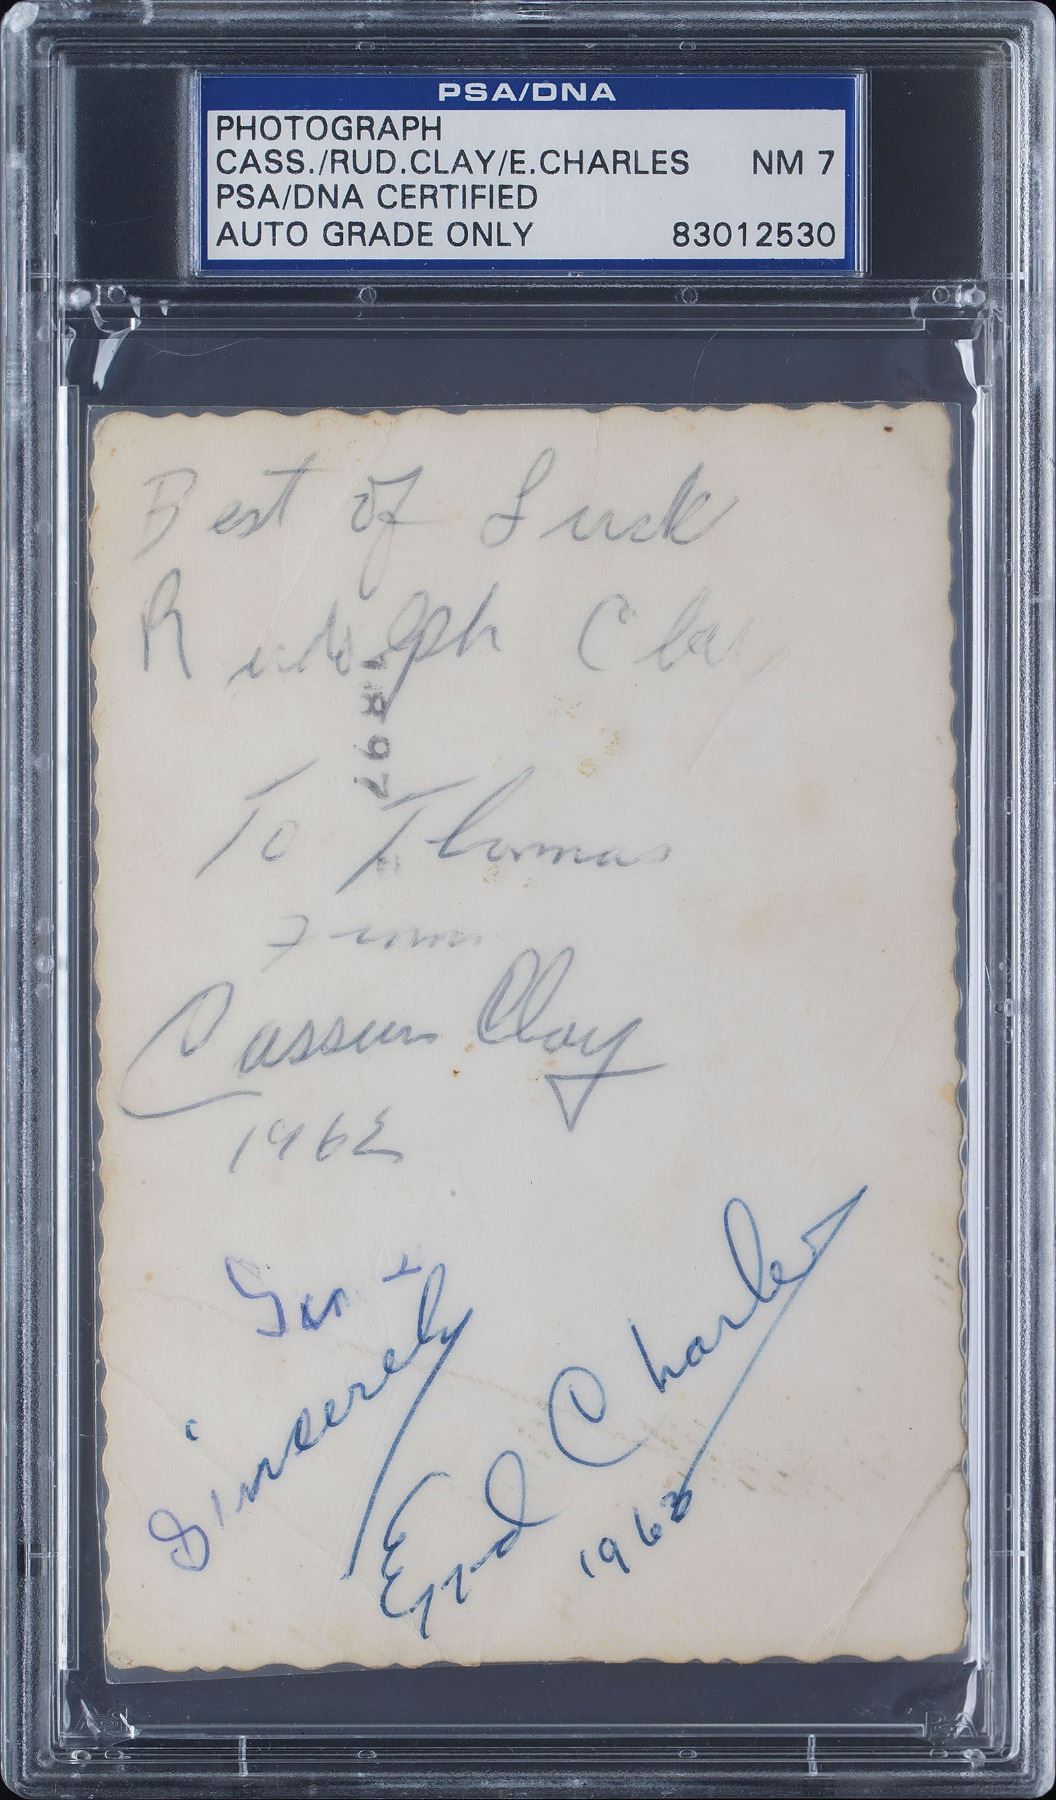 PSA/DNA
PHOTOGRAPH
CASS./RUD.CLAY/E.CHARLES NM 7
PSA/DNA CERTIFIED
AUTO GRADE ONLY 83012530
Best of Luck
Rudolph Clay
To Thomas
From
Cassius Clay
1962
Sincerely
Ezzard Charles